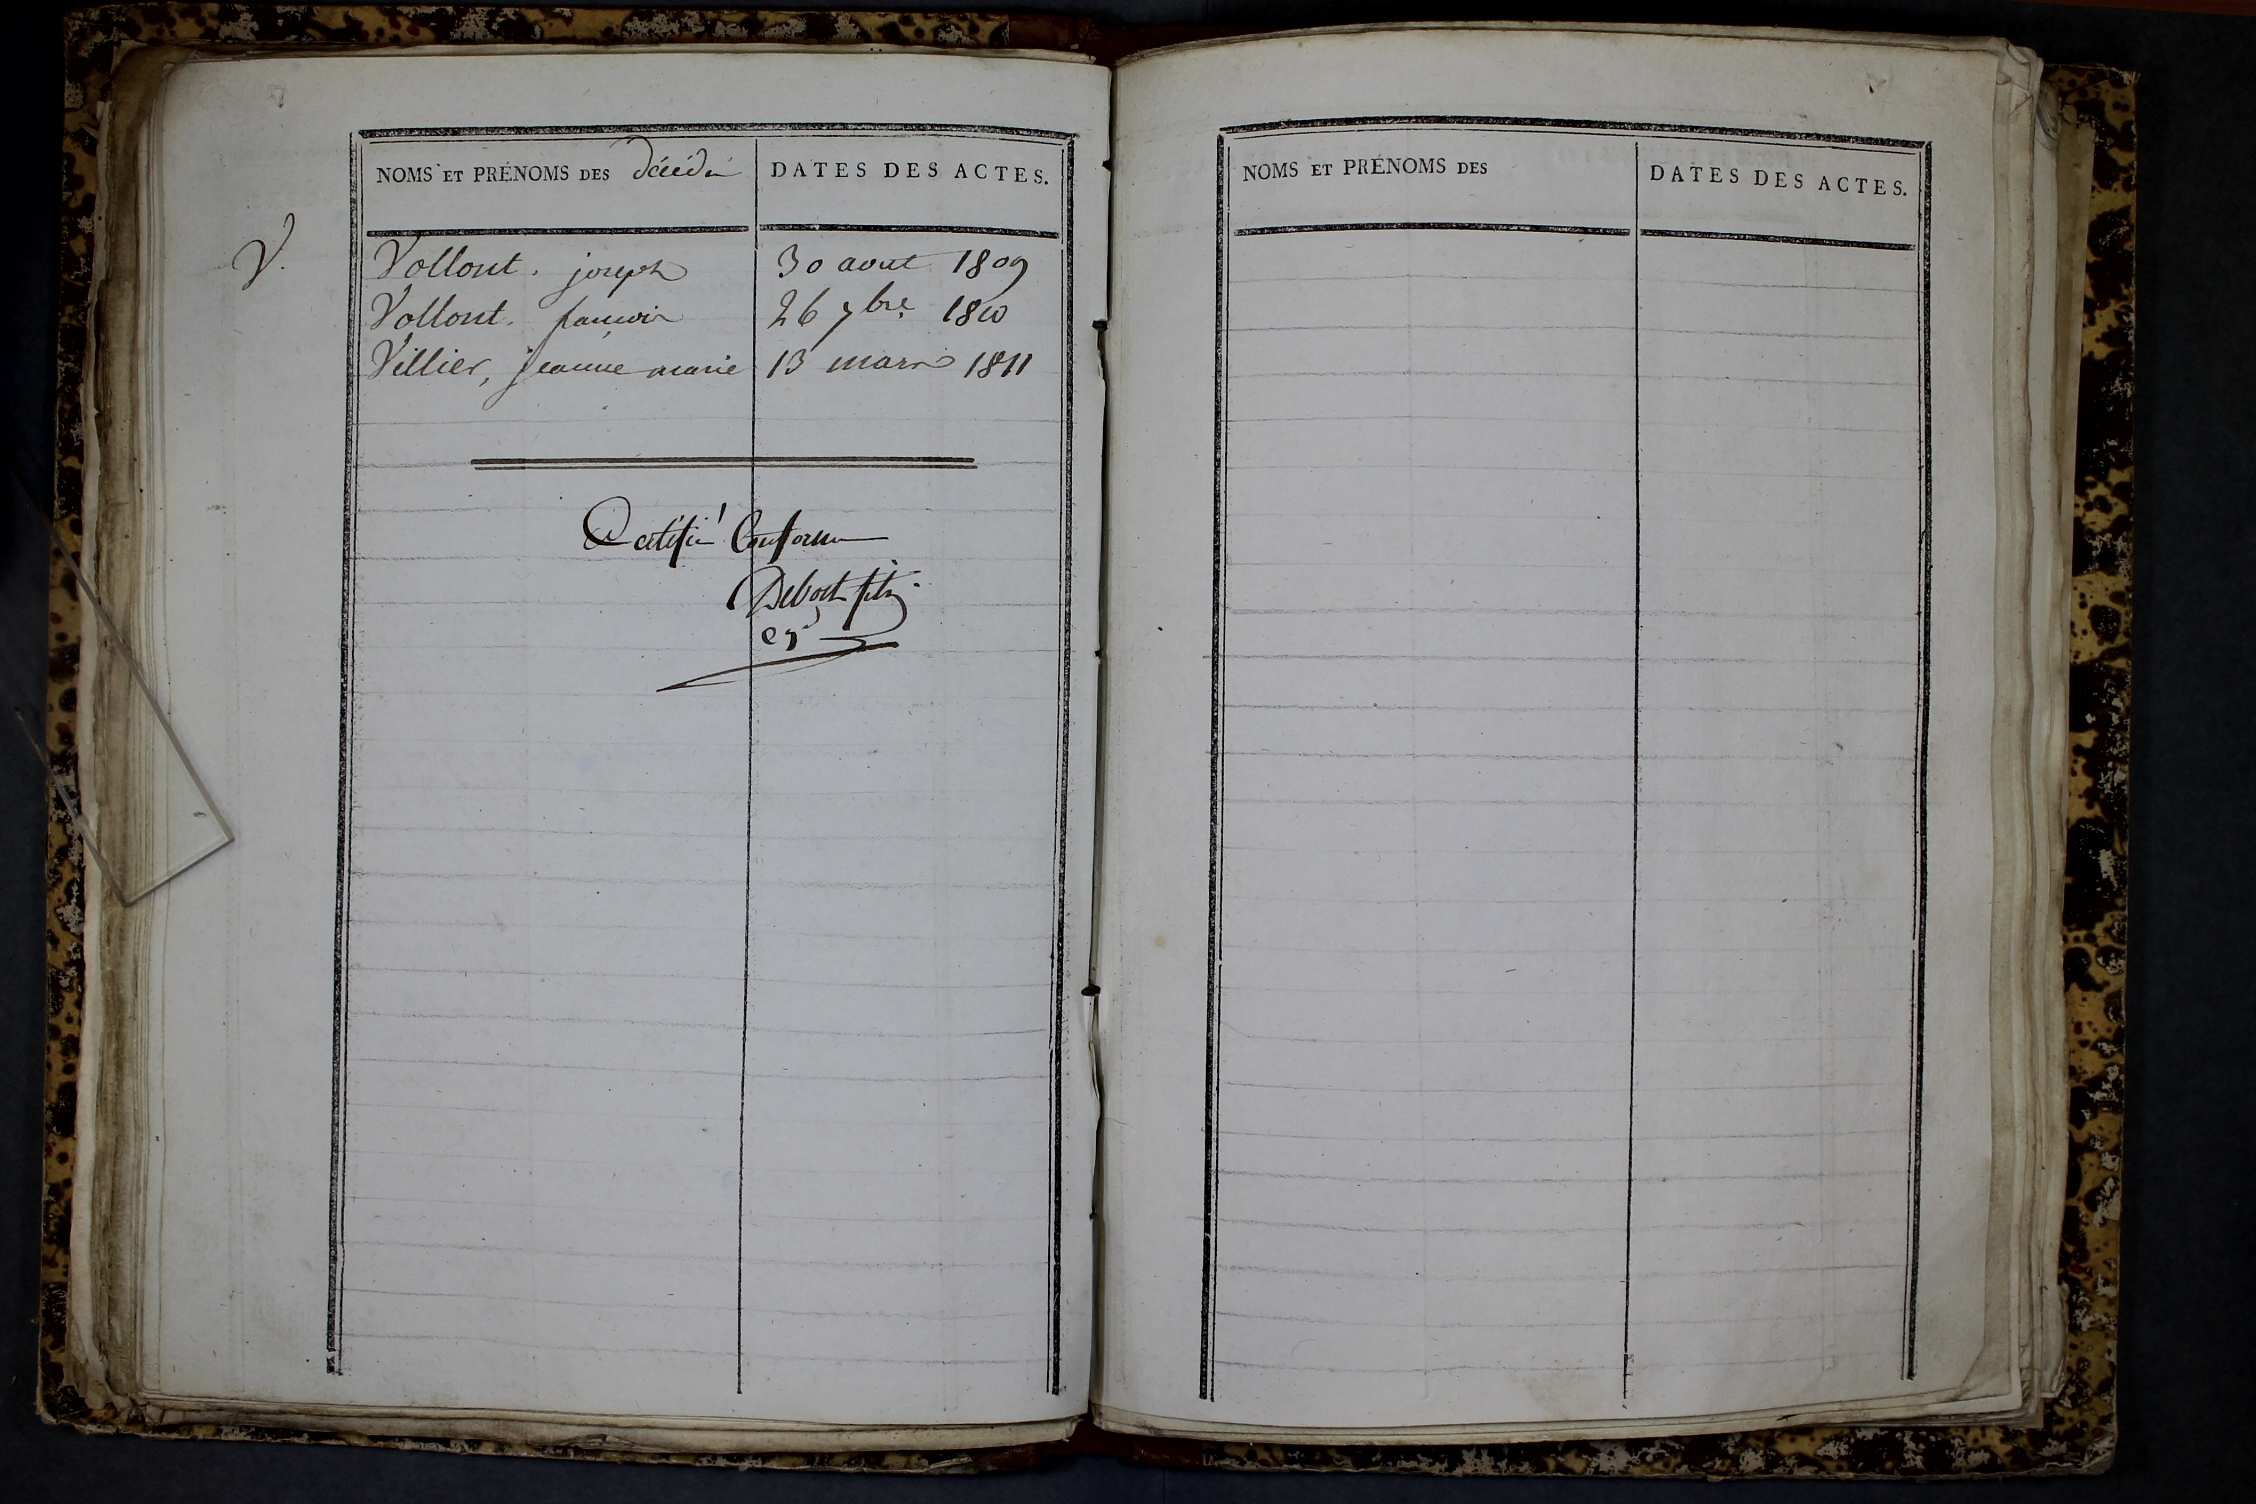 NOMS ET PRÉNOMS DES décédés
DATES DES ACTES.
V.
Vollont. joseph 30 aout 1809
Vollont. francois 26 7bre. 1810
Villier, jeanne marie 13 mars 1811
Certifié Conforme
Debost fils
NOMS ET PRÉNOMS DES
DATES DES ACTES.